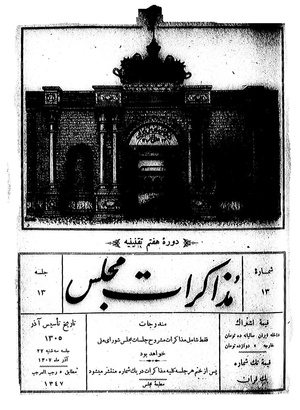 دورهٔ هفتم تقنینیه
شماره
۱۳
مذاکرات مجلس
جلسه
۱۳
قیمت اشتراک
داخله ایران سالیانه ده تومان
خارجه » دوازده تومان
قیمت تک شماره
یک قران
مندرجات
فقط شامل مذاکرات مشروح جلسات مجلس شورای ملی
خواهد بود
پس از ختم هر جلسه کلیه مذاکرات در یک شماره منتشر میشود
مطبعه مجلس
تاریخ تأسیس آذر
۱۳۰۵
جلسه سه‌شنبه ۲۷
آذر ماه ۱۳۰۷
مطابق رجب المرجب
۱۳۴۷